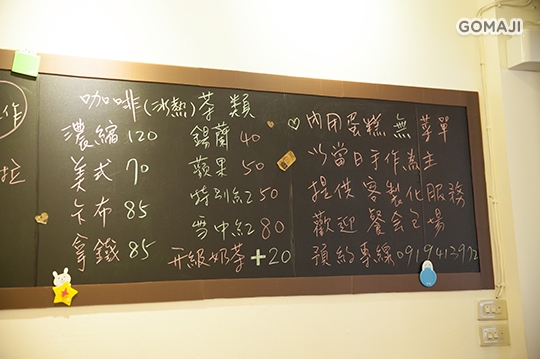 GOMAJI
作
拉
咖啡(冰熱)茶類
濃縮120
美式 70
卡布 85
拿鐵85
錫蘭 40
蘋果 50
特別紅50
雪中紅80
升級奶茶+20
內閣蛋糕無菜單
以當日手作為主
提供客製化服務
歡迎餐会包場
預約專線0919413972